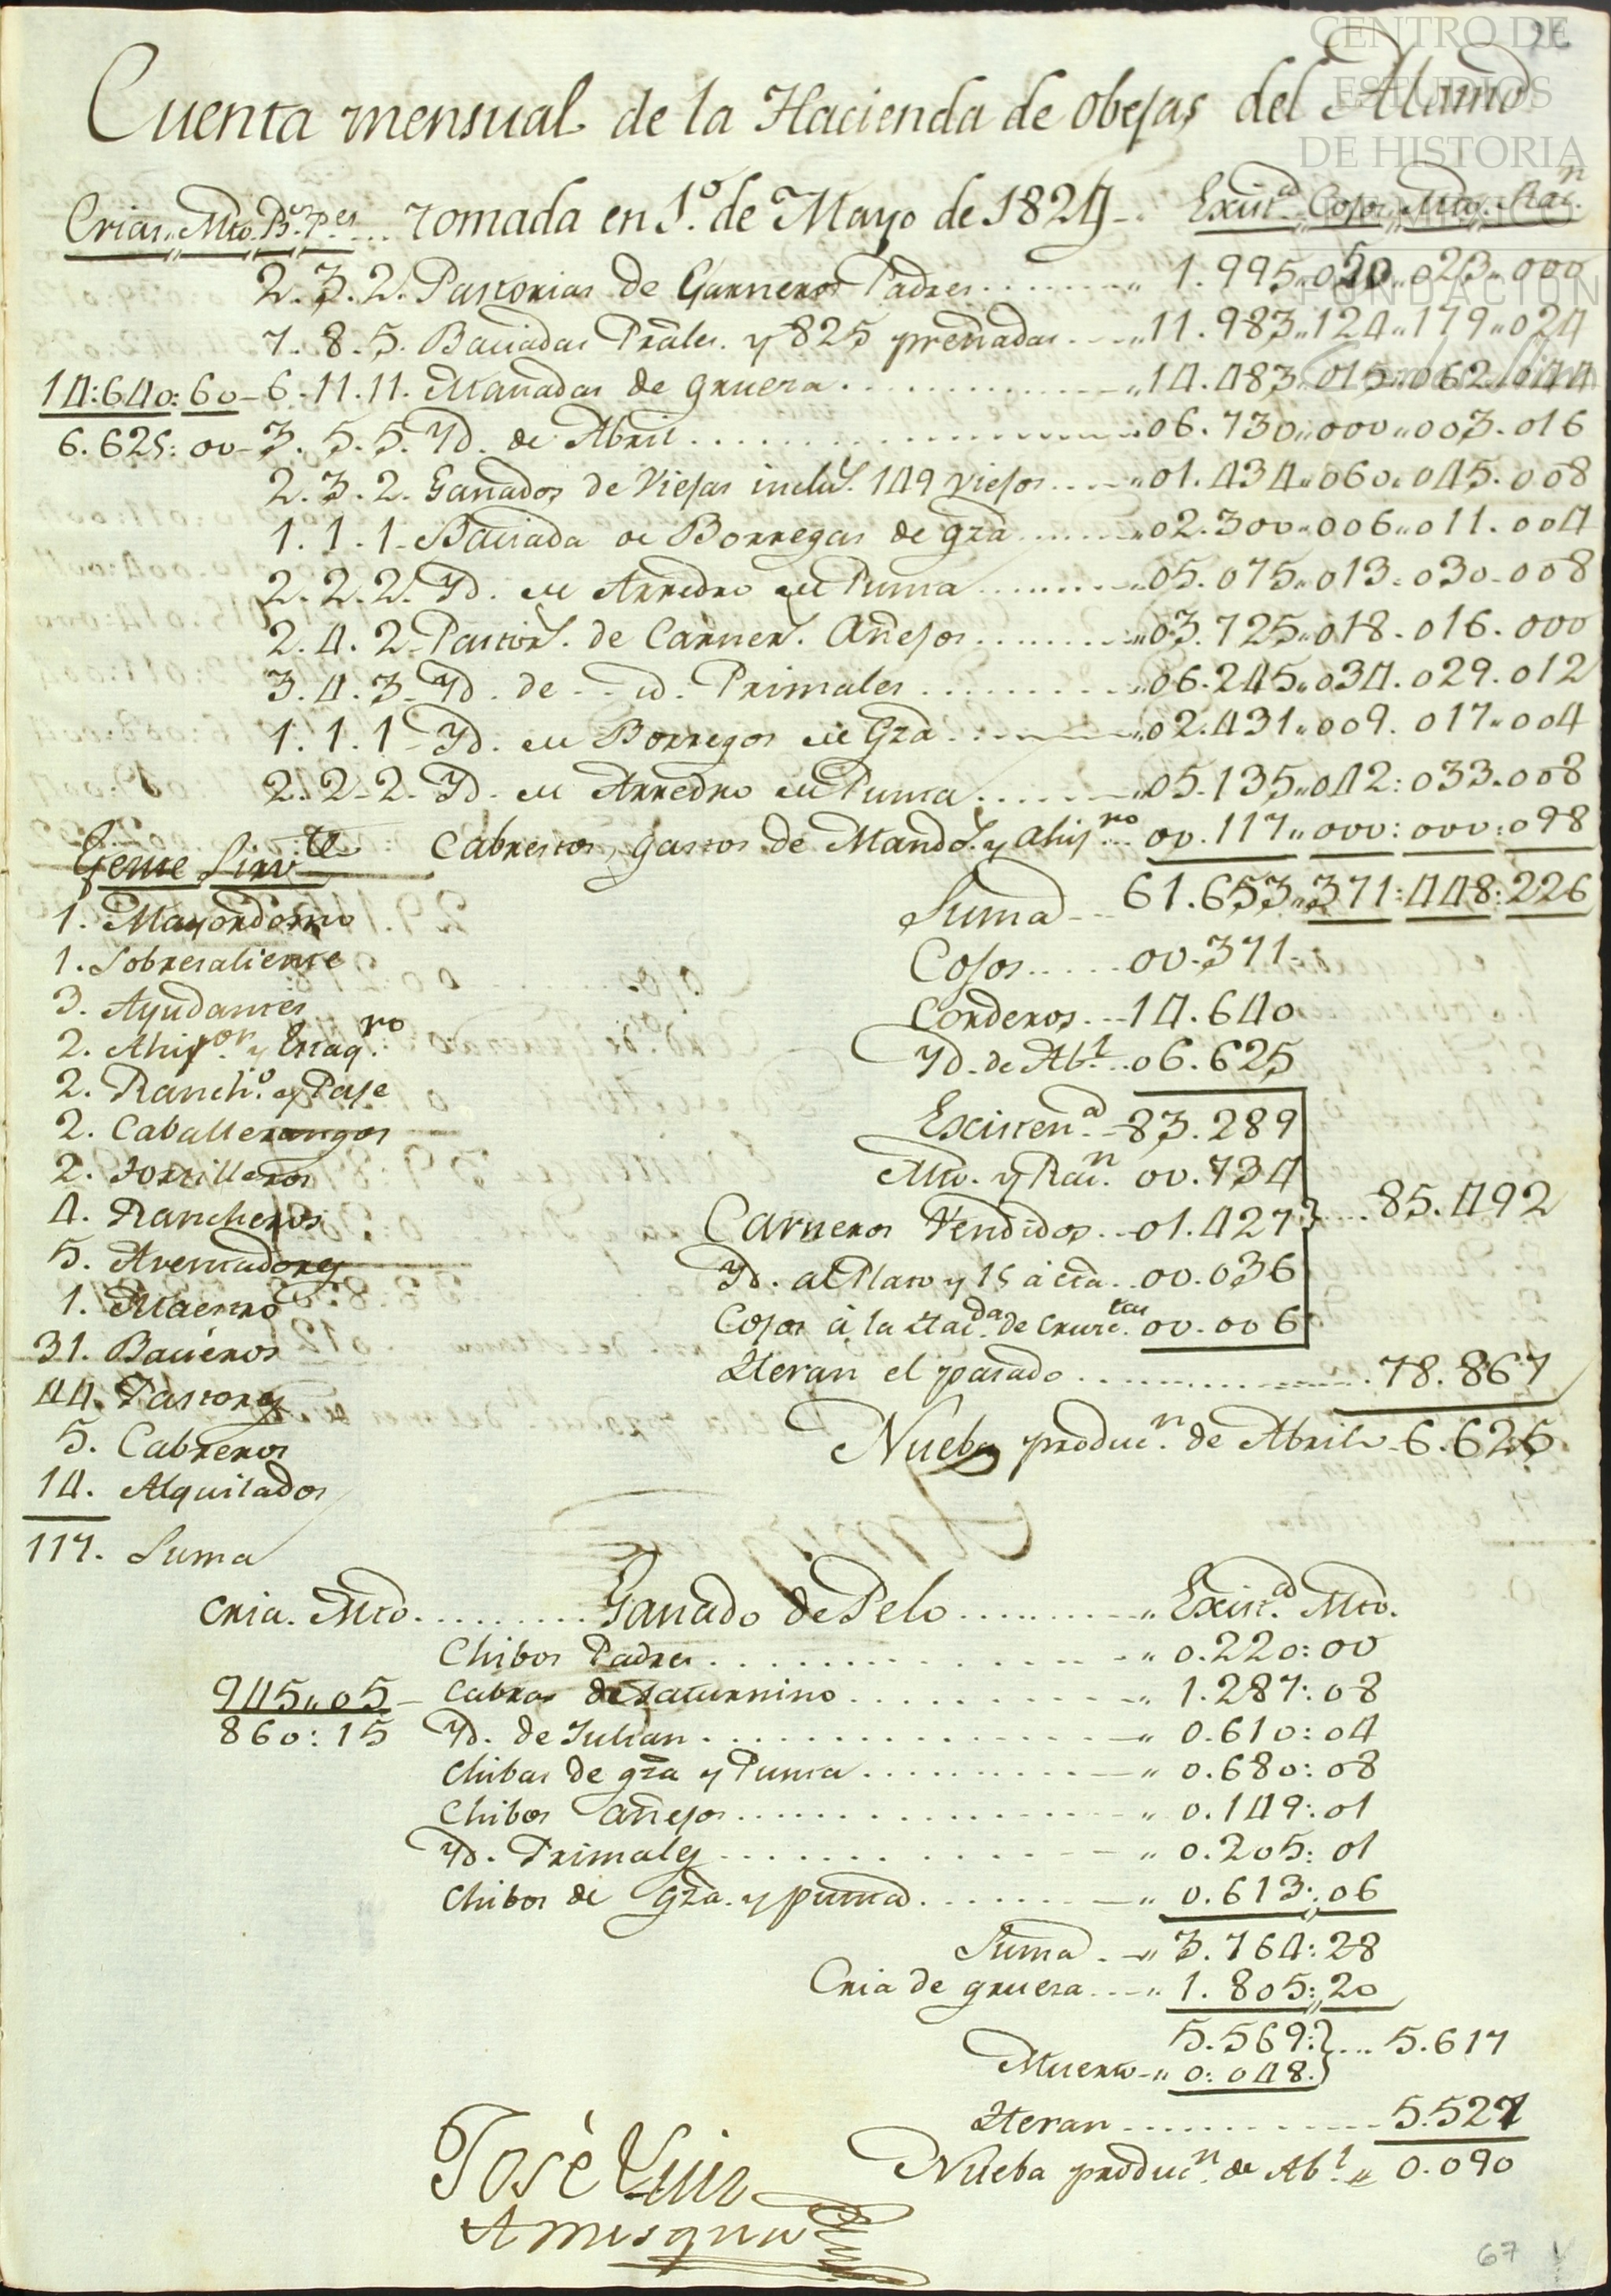 CENTRO DE
ESTUDIOS
DE HISTORIA
DE MEXICO
FUNDACION
Cuenta mensual de la Hacienda de obejas del Alamo
Crias,, Mto. B.s P.es ... tomada en 1.o de Mayo de 1824 -. Exist.a Cojos,, Mto. Rac.n
2. 3. 2. Pastorias de Carneros Padres ........ ,, 1.995,,050,,023,,000
7. 8. 5. Baciadas Prales. y 825 preñadas ... ,,11.983,,124,,179,,024
14:640:60 - 6. 11. 11. Manadas de gruesa .............. ,,14.483,,015,,062,,044
6.625:00 - 3. 5. 5. Yd. de Abril ................ ,,06.730,,000,,003.016
2. 3. 2. Ganados de Viejas inclus. 149 viejos .... ,,01.434,,060,,045.008
1. 1. 1 - Baciada de Borregas de gza ........ ,,02.300,,006,,011.004
2. 2. 2. Yd. de Arredro de Punta ......... ,,05.075,,013:030.008
2. 4. 2 - Pastors. de Carners. Añejos ........ ,,03.725,,018.016.000
3. 4. 3 - Yd. de .. id. Primales ......... ,,06.245,,034.029.012
1. 1. 1 - Yd. de Borregos de Gza ........ ,,02.431,,009.017,,004
2. 2 - 2. Yd. de Arredro de Punta ........ ,,05.135,,042:033.008
Cabrestos, gastos de Mandos. y Ahij.ro .. 00.117,,000:000:098
Gente Sirv.te
Suma - .. 61.653,,371:448:226
1. Mayordomo
Cojos ..... 00.371 -
1. Sobresaliente
Corderos. .. 14.640
3. Ayudantes
Yd. de Ab.l .. 06.625
2. Ahij.or y Estaq.ro
2. Ranch.o y Paje
Existen.a - 83.289
2. Caballerangos
Mto. y Rac.n 00.734
2. Tortilleros
4. Rancheros
Carneros Vendidos .. 01.427 } .... 85.492
5. Aventadores
Yd. al Plato y 15 á cta. .. 00.036
1. Maestro
Cojos à la Hac.da de 00.006
31. Bacieros
Heran el pasado ................ 78.867
44. Pastores
Nueba produc.n de Abril - 6.625
5. Cabreros
14. Alquilados
117. Suma
Cria. Mto. ......... Ganado de Pelo ......... ,, Exist.a Mto.
Chibos Padres ............. ,, 0.220:00
945,,05 - Cabras de Saturnino ............ ,, 1.287:08
860:15 Yd. de Julian ................. ,, 0.610:04
Chibas de gza y Punta .......... ,, 0.680:08
Chibos añejos ................ ,, 0.149:01
Yd. Primales ............... ,, 0.205:01
Chibos de gza. y punta ........ ,, 0.613:,06
Suma . -,, 3.764:28
Cria de gruesa ... ,, 1.805:,20
5.569:} ... 5.617
Muerto -,, 0:048.}
Heran ............ 5.527
Nueba produc.n de Ab.l ,, 0.090
Josè Luis
Amisquita
67